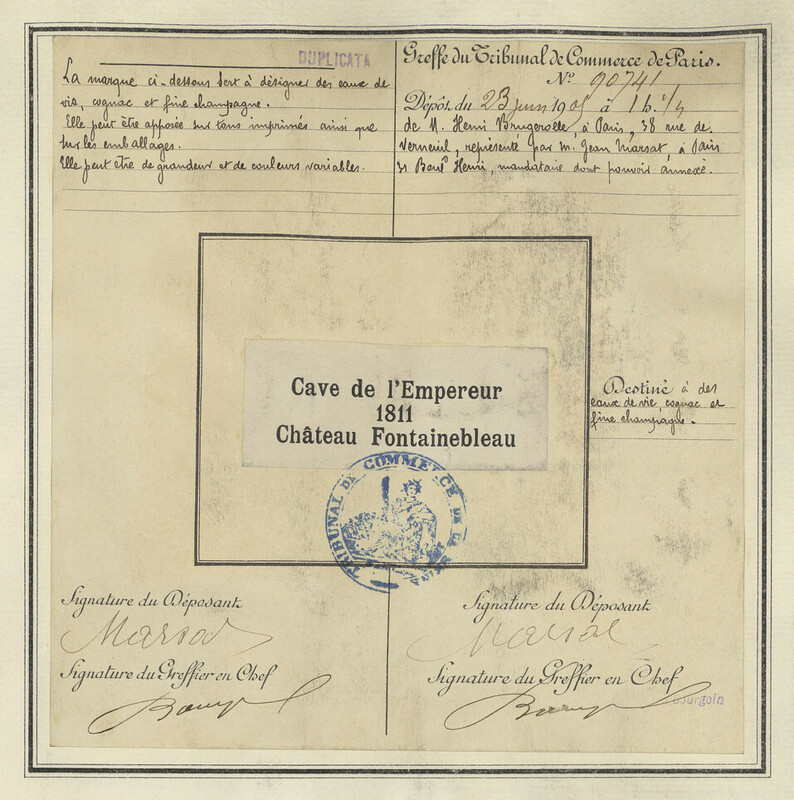 DUPLICATA
La marque ci-dessous sert à désigner des eaux de
vie, cognac et fine champagne.
Elle peut être apposée sur tous imprimés ainsi que
sur les emballages.
Elle peut être de grandeur et de couleurs variables.
Greffe du Tribunal de Commerce de Paris.
N° 90741
Dépôt du 23 juin 1905 à 1h. 1/4
de M. Henri Brugerolle, à Paris, 38 rue de
Verneuil, représenté par M. Jean Marsat, à Paris
31 Boul^d Henri, mandataire dont pouvoir annexé.
Cave de l'Empereur
1811
Château Fontainebleau
Destiné à des
eaux de vie, cognac et
fine champagne.
TRIBUNAL DE COMMERCE DE LA
Signature du Déposant
Marsat
Signature du Greffier en Chef
Signature du Déposant
Marsat
Signature du Greffier en Chef
Bourgoin